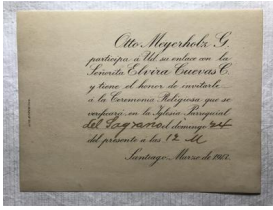 Otto Meyerholz G.
participa á Ud. su enlace con la
Señorita Elvira Cuevas C.
y tiene el honor de invitarle
a la Ceremonia Religiosa que se
verificará en la Iglesia Parroquial
del Sagrario el domingo 24
del presente a las 12 M
Santiago, Marzo de 1907.